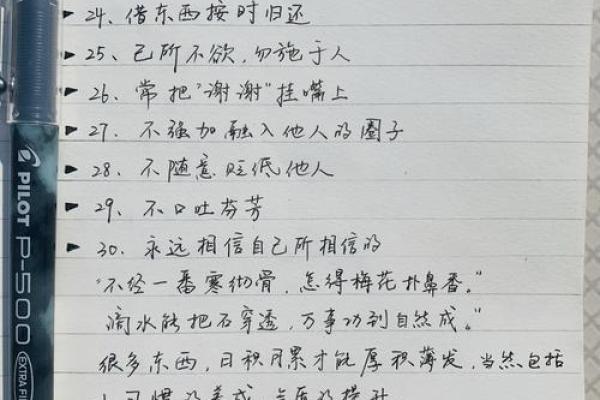 24、借东西按时归还
25、己所不欲，勿施于人
26、常把"谢谢"挂嘴上
27、不强加融入他人的圈子
28、不随意贬低他人
29、不口吐芬芳
30、永远相信自己所相信的
"不经一番寒彻骨，怎得梅花扑鼻香。"
滴水能把石穿透，万事功到自然成。"
很多东西，日积月累才能厚积薄发，当然包括
习惯的养成，气质的提升
PILOT P-500 EXTRA FI